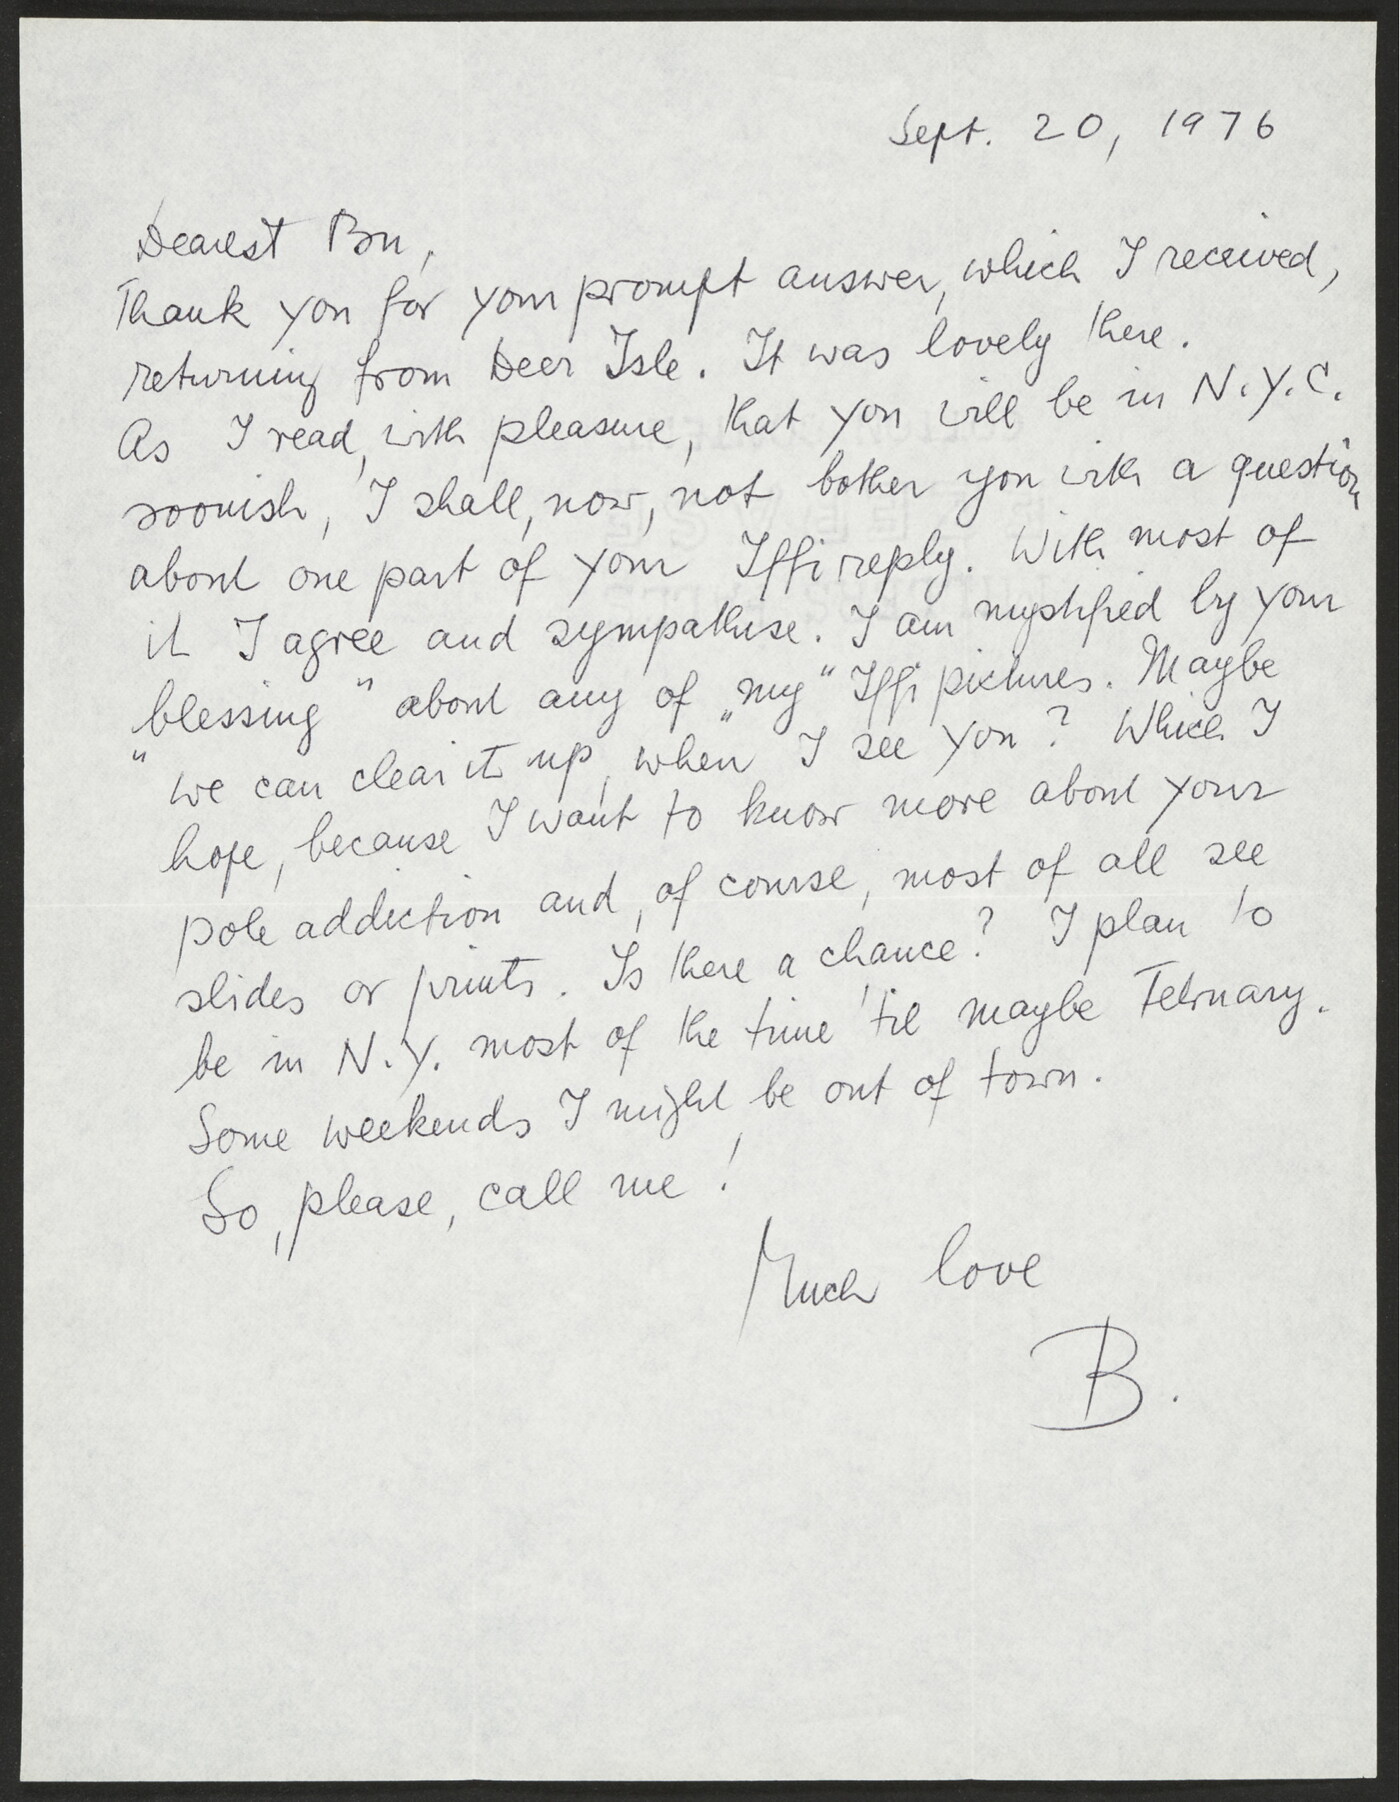 Sept. 20, 1976
Dearest Bu,
Thank you for your prompt answer, which I received,
returning from Deer Isle. It was lovely there.
As I read, with pleasure, that you will be in N.Y.C.
soonish, I shall, now, not bother you with a question
about one part of your Iffi reply. With most of
it I agree and sympathise. I am mystified by your
„blessing" about any of „my" Iffi pictures. Maybe
we can clear it up, when I see you? Which I
hope, because I want to know more about your
pole addiction and, of course, most of all see
slides or prints. Is there a chance? I plan to
be in N.Y. most of the time 'til maybe February.
Some weekends I might be out of town.
So, please, call me!
Much love
B.